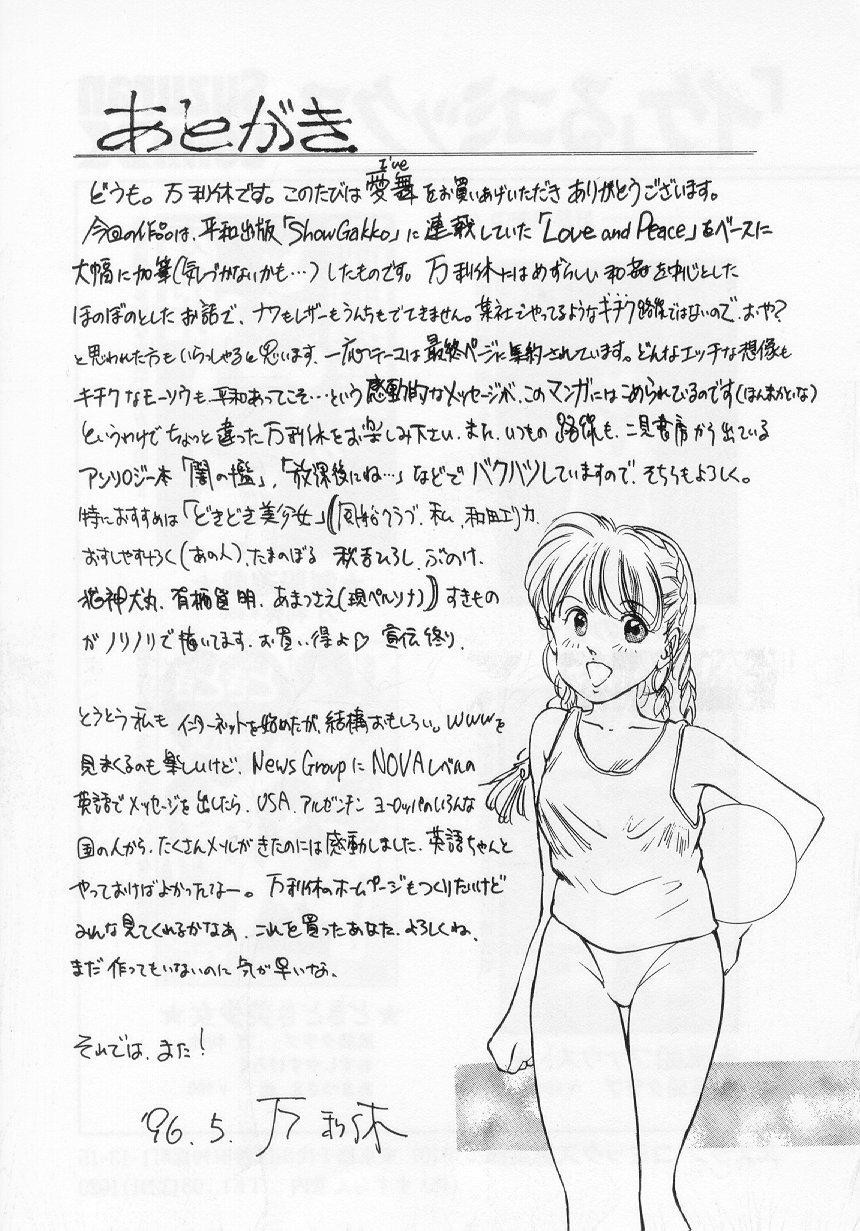 あとがき
I've
どうも。万利休です。このたびは愛舞をお買いあげいただきありがとうございます。
今回の作品は、平和出版「ShowGakko」に連載していた「Love and Peace」をベースに
大幅に加筆(気づかないかも…)したものです。万利休にはめずらしい和姦を中心とした
ほのぼのとしたお話で、ナワもレザーもうんちもでてきません。某社でやってるようなキチク路線ではないので、おや?
と思われた方もいらっしゃると思います、一応テーマは最終ページに集約されています。どんなエッチな想像も
キチクなモーソウも、平和あってこそ…という感動的なメッセージが、このマンガにはこめられているのです(ほんまかいな)
というわけでちょっと違った万利休をお楽しみ下さい、また、いつもの路線も、二見書房から出ている
アンソロジー本「闇の檻」、「放課後にね…」などでバクハツしていますので、そちらもよろしく。
特におすすめは「どきどき美少女」(風船クラブ、私、和田エリカ、
おすしやすけろく(あの人)、たまのぼる 秋吉ひろし、ぶのけ、
猫神犬丸、有栖宣明、あまつさえ(現ペルソナ))すきもの
がノリノリで描いてます、お買い得よ♡ 宣伝終り、
とうとう私もインターネットを始めたが、結構おもしろい。WWWを
見まくるのも楽しいけど、News GroupにNOVAレベルの
英語でメッセージを出したら、USA、アルゼンチン ヨーロッパのいろんな
国の人から、たくさんメールがきたのには感動しました、英語ちゃんと
やっておけばよかったなー。万利休のホームページもつくりたいけど
みんな見てくれるかなあ、これを買ったあなた、よろしくね、
まだ作ってもいないのに気が早いな、
それでは、また!
'96.5. 万利休